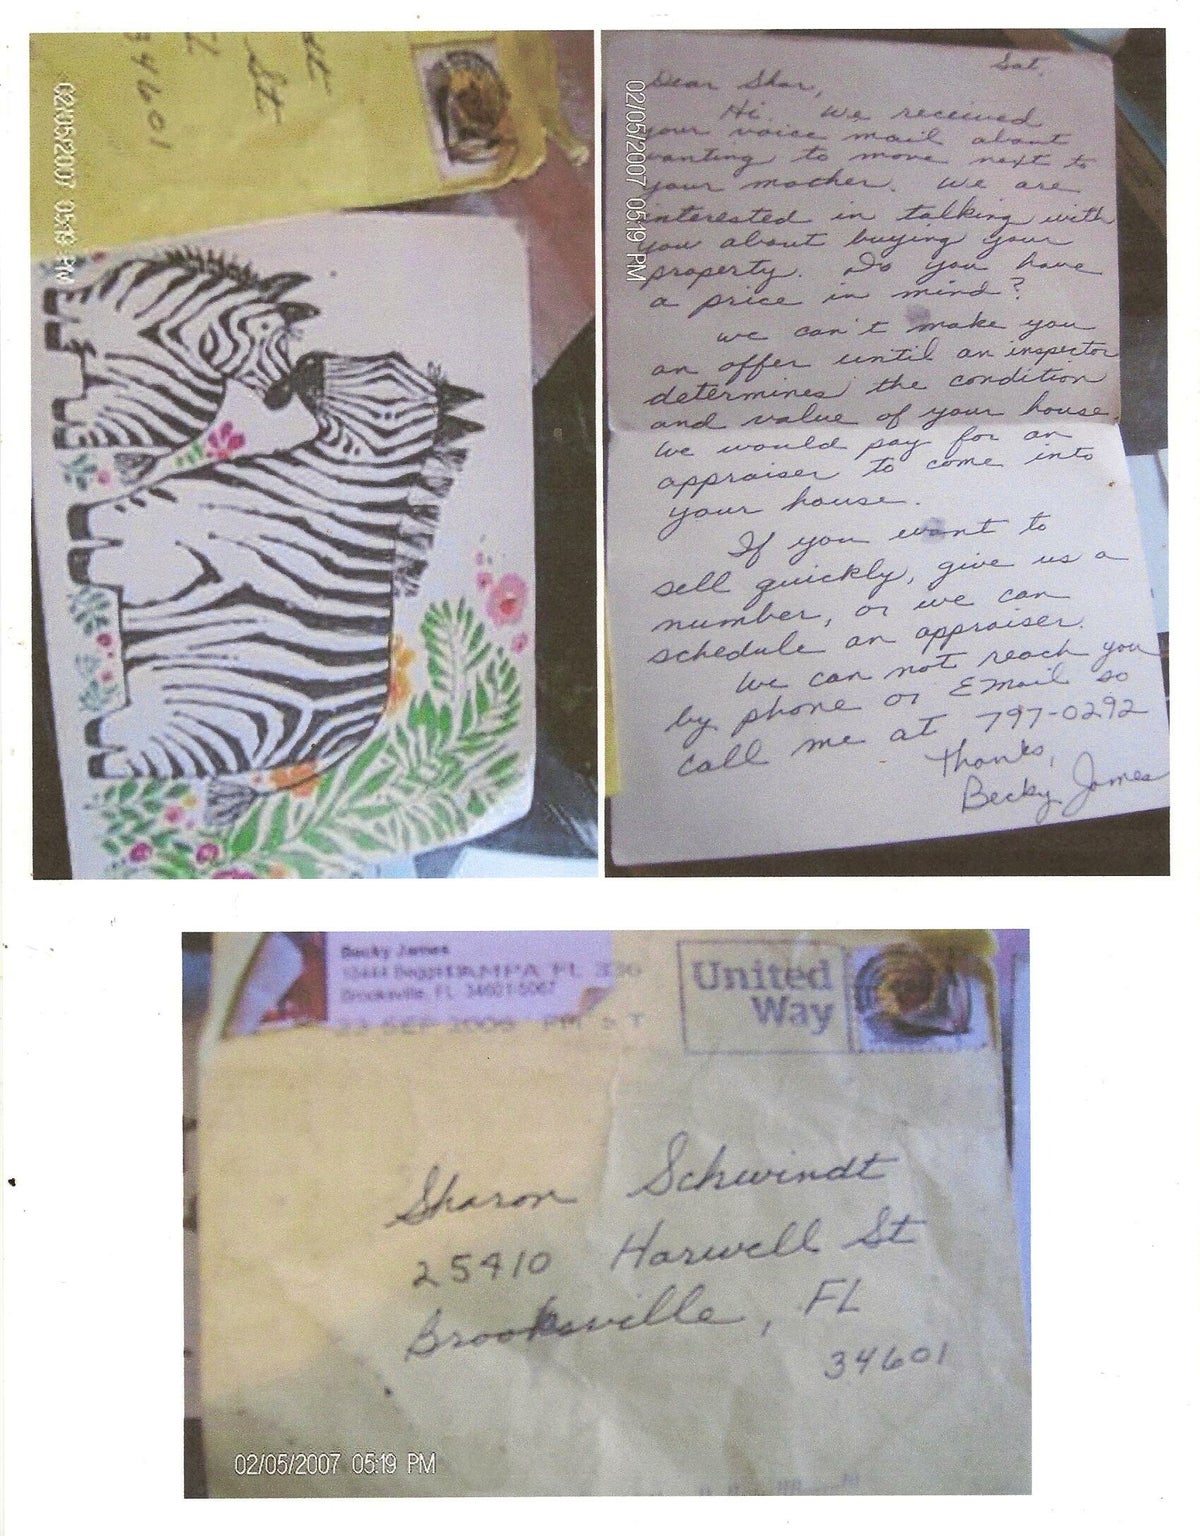 02/05/2007 05:19 PM
34601
St
Sat.
Dear Shar,
Hi. We received
your voice mail about
wanting to move next to
your mother. We are
interested in talking with
you about buying your
property. Do you have
a price in mind?
We can't make you
an offer until an inspector
determines the condition
and value of your house.
We would pay for an
appraiser to come into
your house.
If you want to
sell quickly, give us a
number, or we can
schedule an appraiser.
We can not reach you
by phone or EMail so
call me at 797-0292
Thanks,
Becky James
02/05/2007 05:19 PM
Becky James
TAMPA FL
Brooksville, FL 34601-5067
SEP PM
United
Way
Sharon Schwindt
25410 Harwell St
Brooksville, FL
34601
02/05/2007 05:19 PM